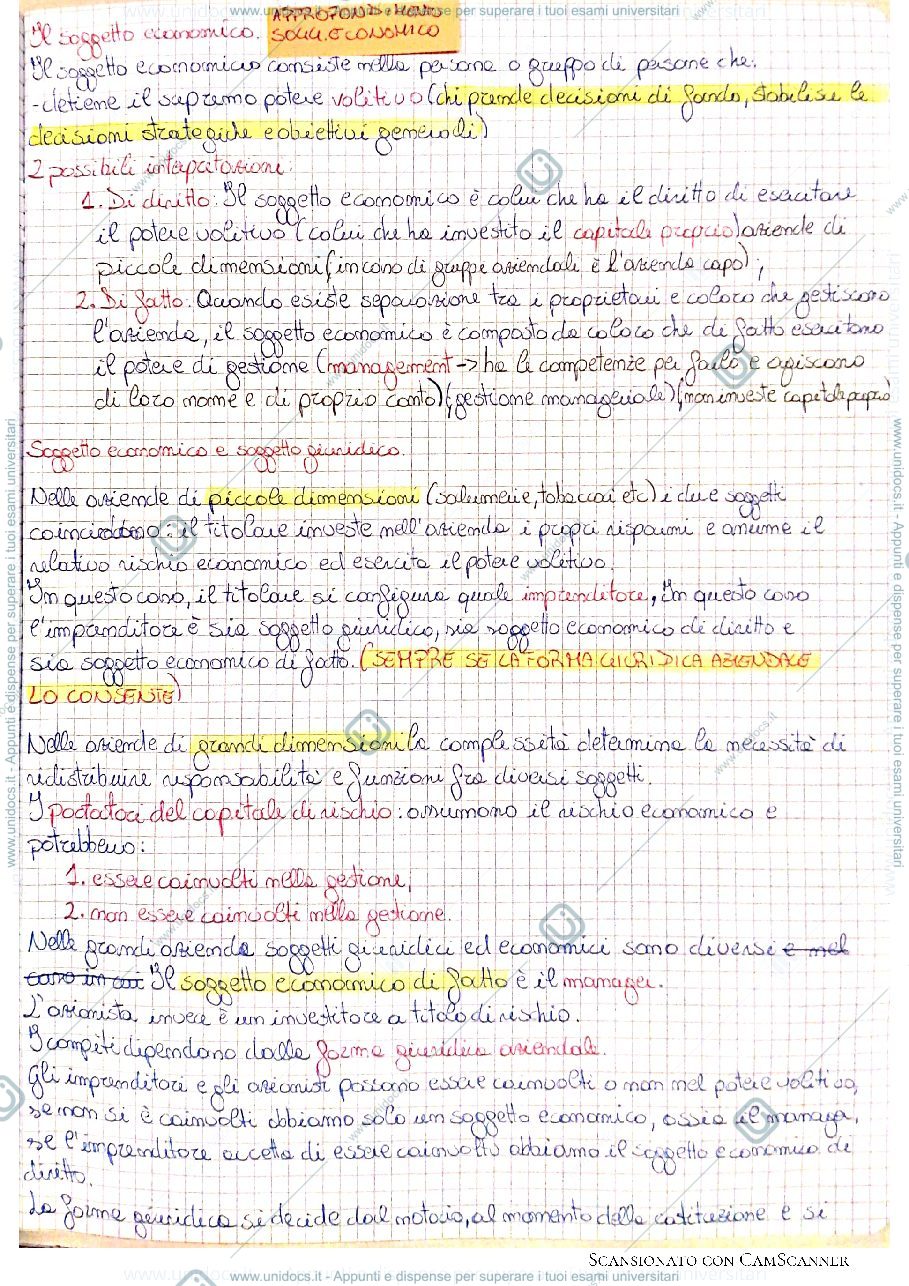 www.unidocs.it - Appunti e dispense per superare i tuoi esami universitari
APPROFONDIMENTO
SOGG. ECONOMICO
Il soggetto economico.
Il soggetto economico consiste nella persona o gruppo di persone che:
-detiene il supremo potere volitivo (chi prende decisioni di fondo, stabilisce le
decisioni strategiche e obiettivi generali)
2 possibili interpretazioni:
1. Di diritto: Il soggetto economico è colui che ha il diritto di esercitare
il potere volitivo (colui che ha investito il capitale proprio) aziende di
piccole dimensioni (in caso di gruppe aziendale è l'azienda capo);
2. Di fatto: Quando esiste separazione tra i proprietari e coloro che gestiscono
l'azienda, il soggetto economico è composto da coloro che di fatto esercitano
il potere di gestione (management -> ha le competenze per farlo e agiscono
di loro nome e di proprio conto) (gestione manageriale) (non investe capitale proprio)
Soggetto economico e soggetto giuridico.
Nelle aziende di piccole dimensioni (salumerie, tabaccai etc) i due soggetti
coincidono: il titolare investe nell'azienda i propri risparmi e assume il
relativo rischio economico ed esercita il potere volitivo.
In questo caso, il titolare si configura quale imprenditore, In questo caso
l'imprenditore è sia soggetto giuridico, sia soggetto economico di diritto e
sia soggetto economico di fatto. (SEMPRE SE LA FORMA GIURIDICA AZIENDALE
LO CONSENTE)
Nelle aziende di grandi dimensioni la complessità determina la necessità di
ridistribuire responsabilità e funzioni fra diversi soggetti.
I portatori del capitale di rischio: assumono il rischio economico e
potrebbero:
1. essere coinvolti nella gestione,
2. non essere coinvolti nella gestione.
Nelle grandi aziende soggetti giuridici ed economici sono diversi e nel
caso in cui Il soggetto economico di fatto è il manager.
L'azionista invece è un investitore a titolo di rischio.
I compiti dipendono dalla forma giuridica aziendale.
Gli imprenditori e gli azionisti possono essere coinvolti o non nel potere volitivo,
se non si è coinvolti abbiamo solo un soggetto economico, ossia il manager,
se l'imprenditore accetta di essere coinvolto abbiamo il soggetto economico di
diritto.
La forma giuridica si decide dal notaio, al momento della costituzione e si
Scansionato con CamScanner
www.unidocs.it - Appunti e dispense per superare i tuoi esami universitari
www.unidocs.it - Appunti e dispense per superare i tuoi esami universitari
www.unidocs.it - Appunti e dispense per superare i tuoi esami universitari